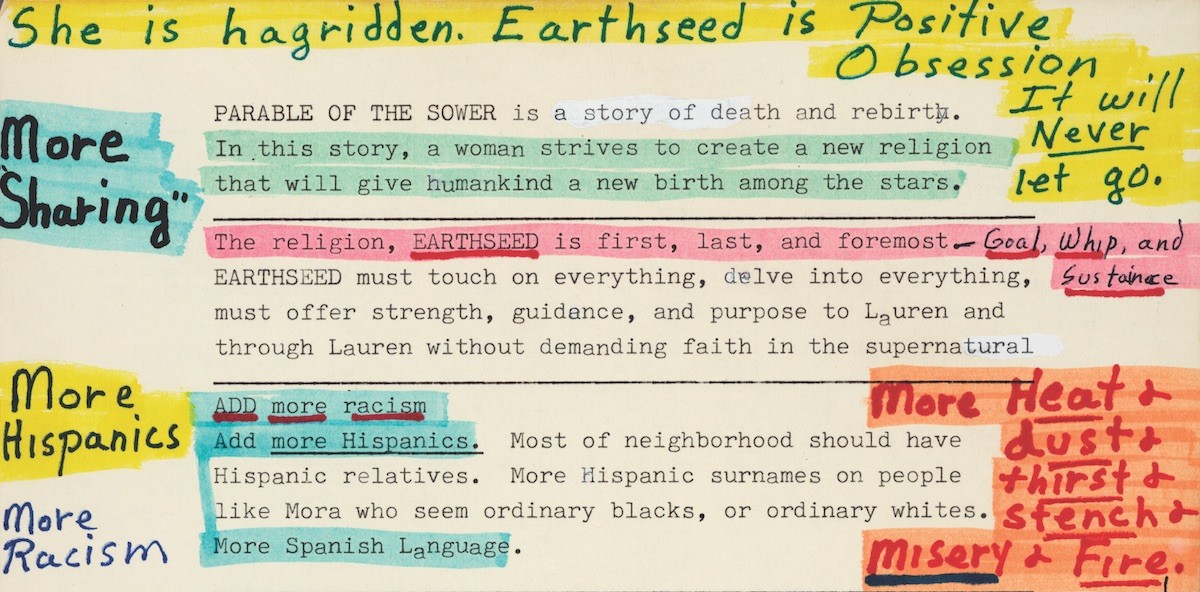 She is hagridden. Earthseed is Positive
Obsession
It will
Never
let go.
More
"Sharing"
PARABLE OF THE SOWER is a story of death and rebirth.
In this story, a woman strives to create a new religion
that will give humankind a new birth among the stars.
The religion, EARTHSEED is first, last, and foremost - Goal, Whip, and
Sustainace
EARTHSEED must touch on everything, delve into everything,
must offer strength, guidance, and purpose to Lauren and
through Lauren without demanding faith in the supernatural
More
Hispanics
More
Racism
ADD more racism
Add more Hispanics. Most of neighborhood should have
Hispanic relatives. More Hispanic surnames on people
like Mora who seem ordinary blacks, or ordinary whites.
More Spanish Language.
More Heat &
dust &
thirst &
stench &
Misery & Fire.